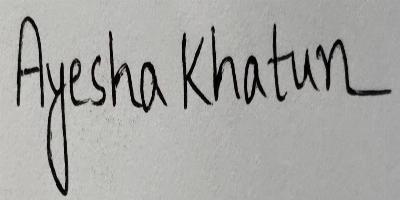 Ayesha Khatun